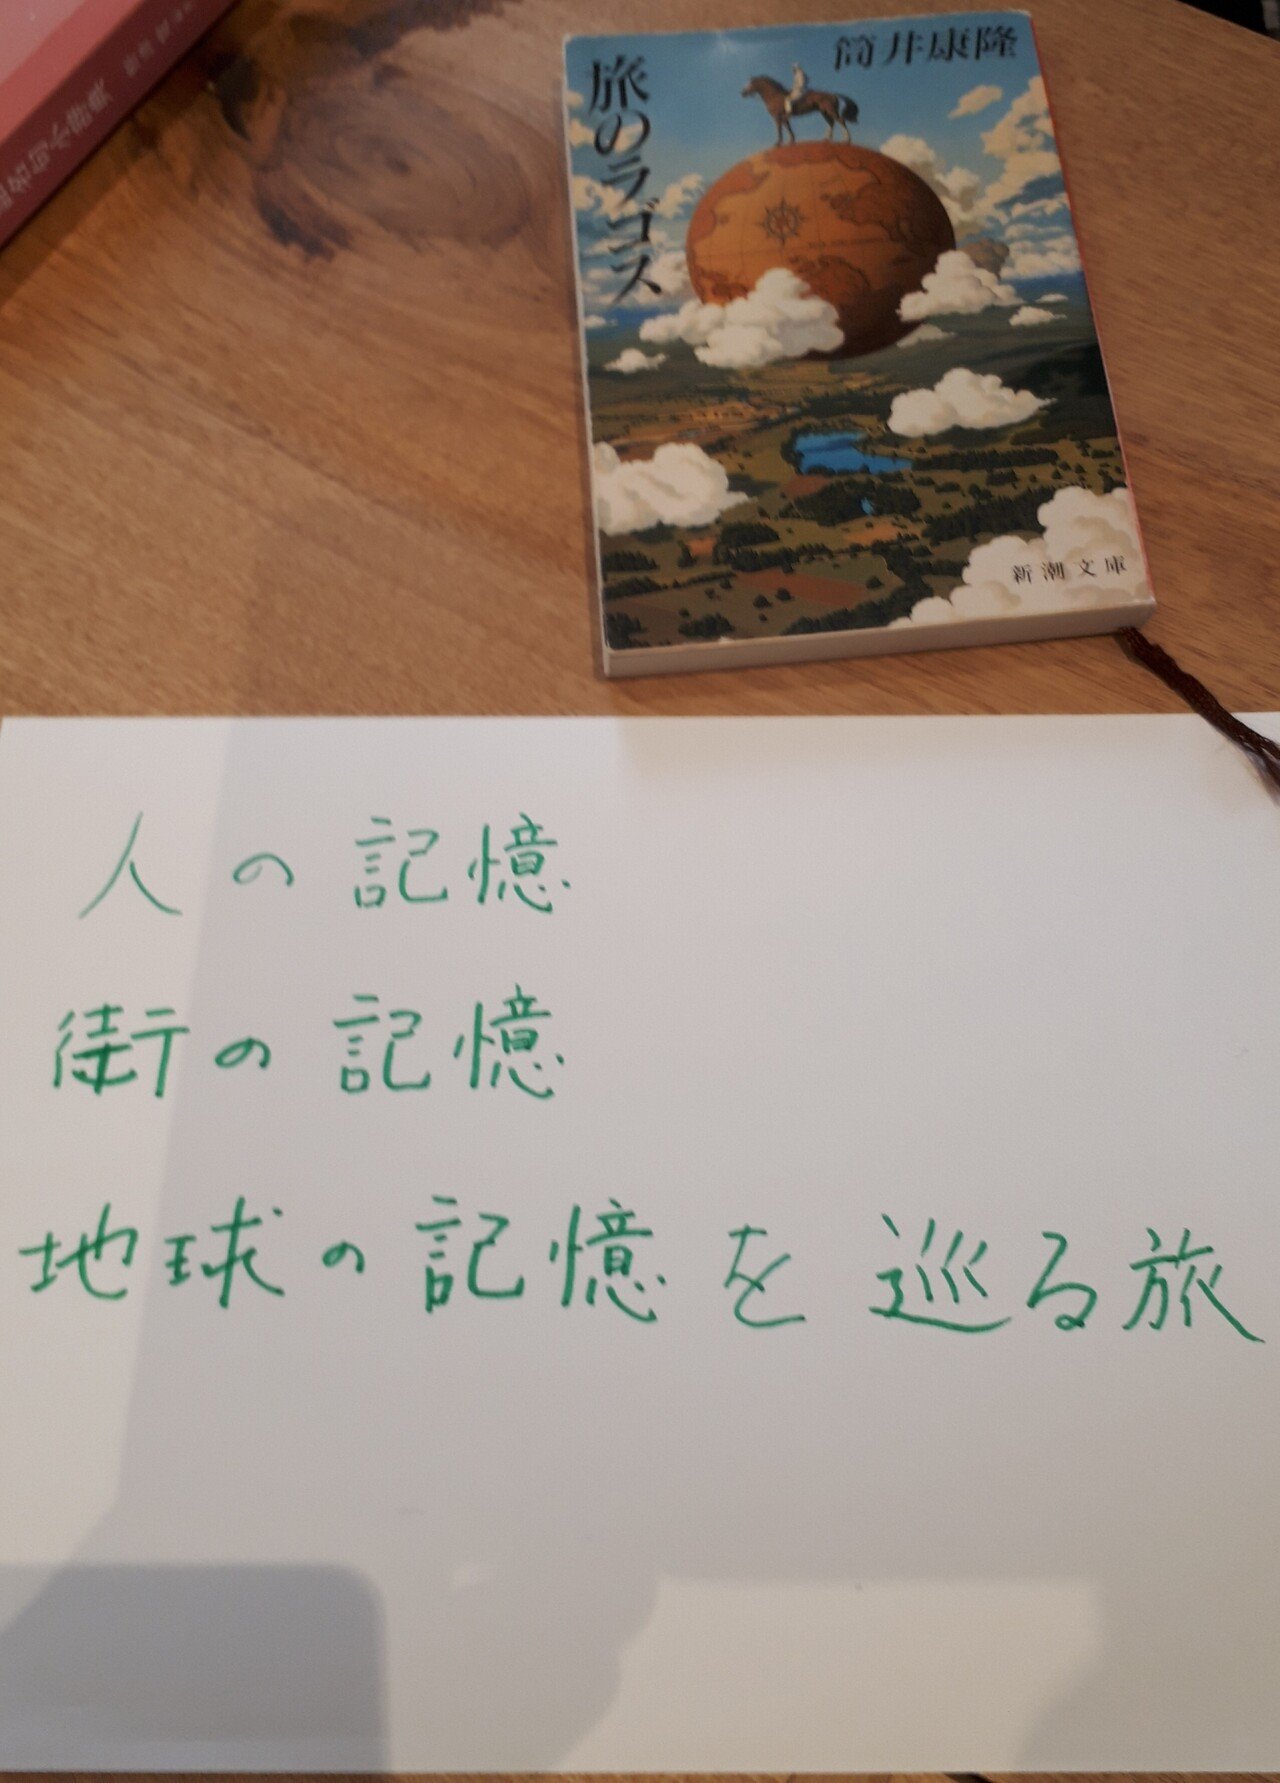 筒井康隆
旅のラゴス
新潮文庫
人の記憶
街の記憶
地球の記憶を巡る旅